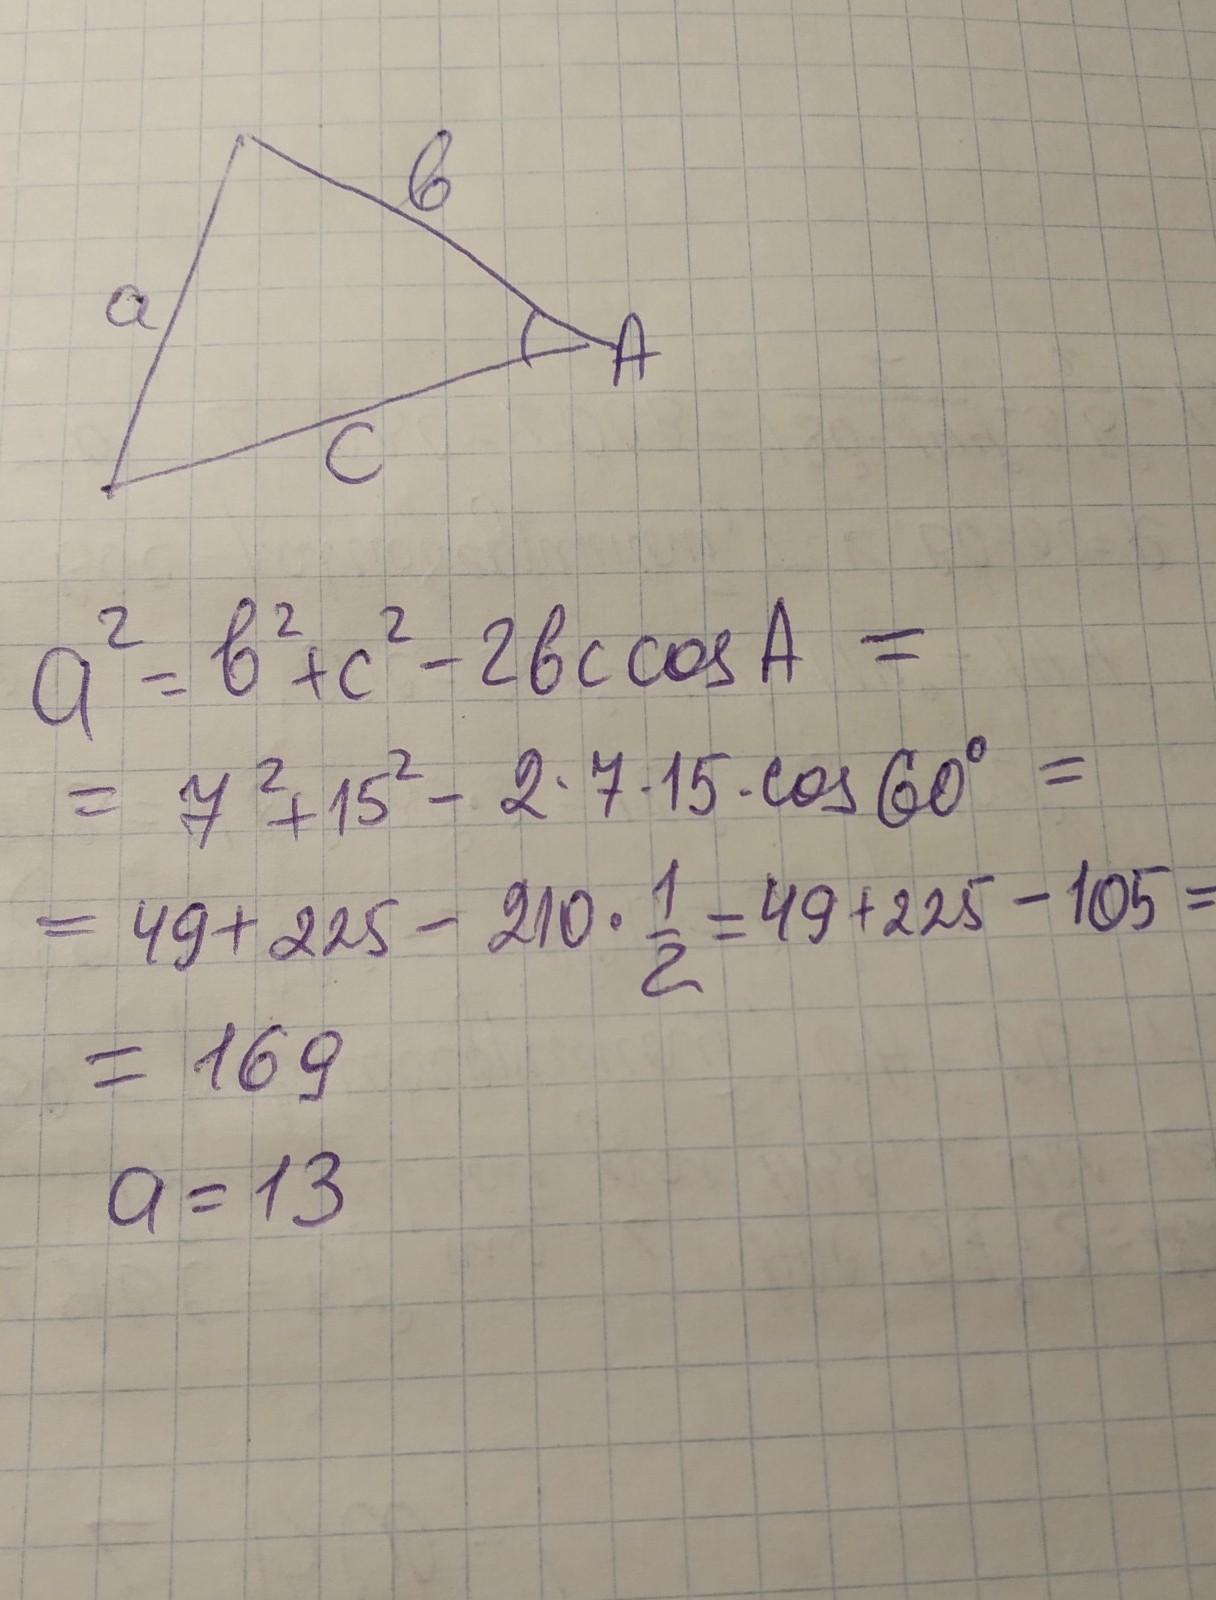 в
a
A
C
a² = в² + c² - 2вc cos A =
= 7² + 15² - 2·7·15·cos 60° =
= 49 + 225 - 210 · 1/2 = 49 + 225 - 105 =
= 169
a = 13